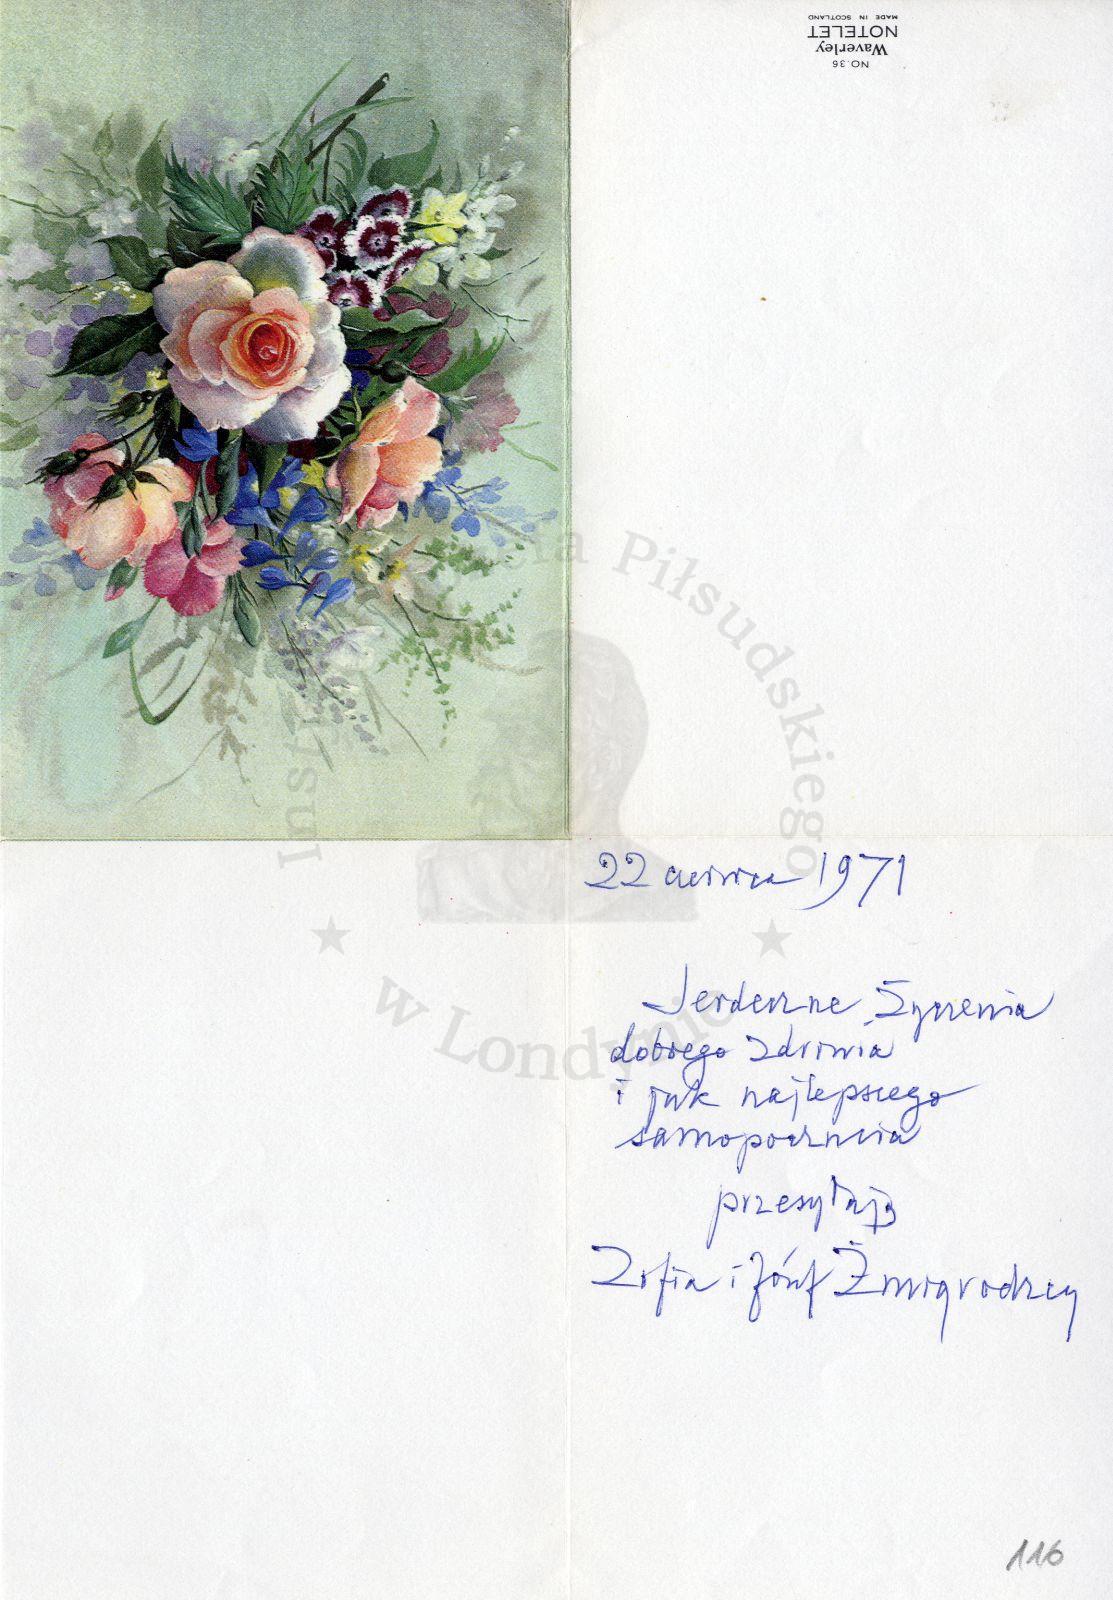 NO.36
Waverley
NOTELET
MADE IN SCOTLAND
Instytut Józefa Piłsudskiego
w Londynie
22 czerwca 1971
Serdeczne Życzenia
dobrego zdrowia
i jak najlepszego
samopoczucia
przesyłają
Zofia i Józef Żmigrodzcy
116